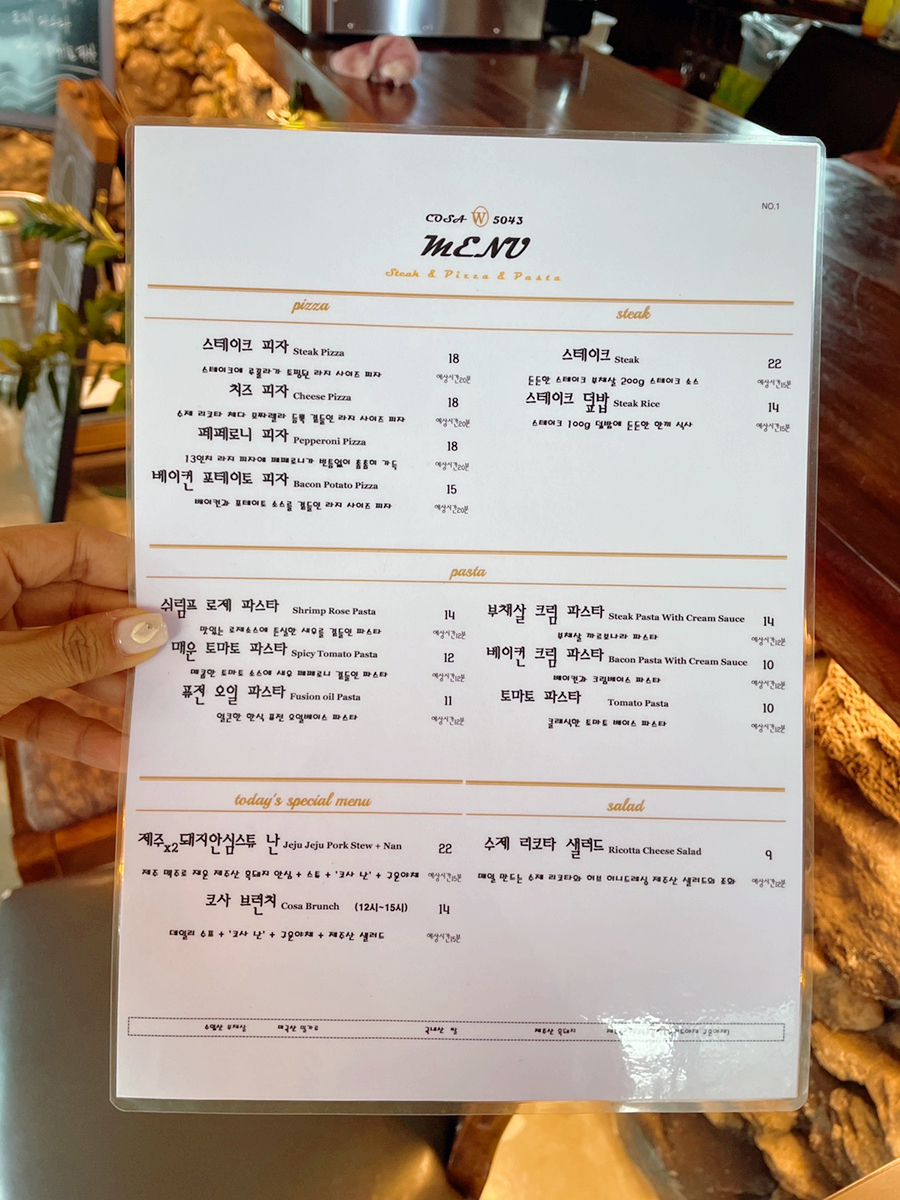 COSA W 5043
NO.1
MENU
Steak & Pizza & Pasta
pizza
스테이크 피자 Steak Pizza 18
스테이크에 루꼴라가 토핑된 라지 사이즈 피자 예상시간20분
치즈 피자 Cheese Pizza 18
수제 리코타 체다 모짜렐라 듬뿍 곁들인 라지 사이즈 피자 예상시간20분
페페로니 피자 Pepperoni Pizza 18
13인치 라지 피자에 페페로니가 빈틈없이 촘촘히 가득 예상시간20분
베이컨 포테이토 피자 Bacon Potato Pizza 15
베이컨과 포테이토 소스를 곁들인 라지 사이즈 피자 예상시간20분
steak
스테이크 Steak 22
든든한 스테이크 부채살 200g 스테이크 소스 예상시간15분
스테이크 덮밥 Steak Rice 14
스테이크 100g 덮밥에 든든한 한끼 식사 예상시간15분
pasta
쉬림프 로제 파스타 Shrimp Rose Pasta 14
맛있는 로제소스에 튼실한 새우를 곁들인 파스타 예상시간12분
매운 토마토 파스타 Spicy Tomato Pasta 12
매콤한 토마토 소스에 새우 페페로니 곁들인 파스타 예상시간12분
퓨전 오일 파스타 Fusion oil Pasta 11
얼큰한 한식 퓨전 오일베이스 파스타 예상시간12분
부채살 크림 파스타 Steak Pasta With Cream Sauce 14
부채살 까르보나라 파스타 예상시간12분
베이컨 크림 파스타 Bacon Pasta With Cream Sauce 10
베이컨과 크림베이스 파스타 예상시간12분
토마토 파스타 Tomato Pasta 10
클래식한 토마토 베이스 파스타 예상시간12분
today's special menu
제주x2돼지안심스튜 난 Jeju Jeju Pork Stew + Nan 22
제주 맥주로 재운 제주산 흑돼지 안심 + 스튜 + '코사 난' + 구운야채 예상시간15분
코사 브런치 Cosa Brunch (12시~15시) 14
데일리 수프 + '코사 난' + 구운야채 + 제주산 샐러드 예상시간15분
salad
수제 리코타 샐러드 Ricotta Cheese Salad 9
매일 만드는 수제 리코타와 허브 허니드레싱 제주산 샐러드의 조화 예상시간12분
수입산 부채살 미국산 밀가루 국내산 쌀 제주산 흑돼지